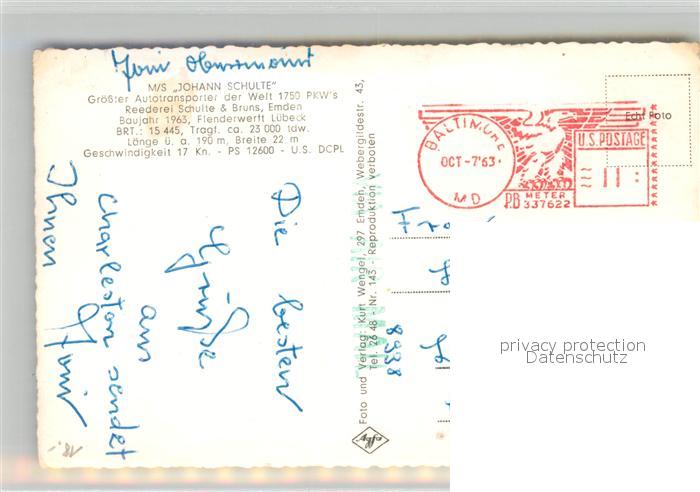 M/S „JOHANN SCHULTE"
Größter Autotransporter der Welt 1750 PKW's
Reederei Schulte & Bruns, Emden
Baujahr 1963, Flenderwerft Lübeck
BRT.: 15 445, Tragf. ca. 23 000 tdw.
Länge ü. a. 190 m, Breite 22 m
Geschwindigkeit 17 Kn. - PS 12600 - U.S. DCPL
Die besten
Grüße
aus
Charleston sendet
Ihnen
18.-
Foto und Verlag: Kurt Wengel, 297 Emden, Webergildestr. 43,
Tel. 26 48 - Nr. 143 - Reproduktion verboten
8938
BALTIMORE
OCT-7'63
MD
U.S. POSTAGE
11
PB METER
337622
Echt Foto
privacy protection
Datenschutz